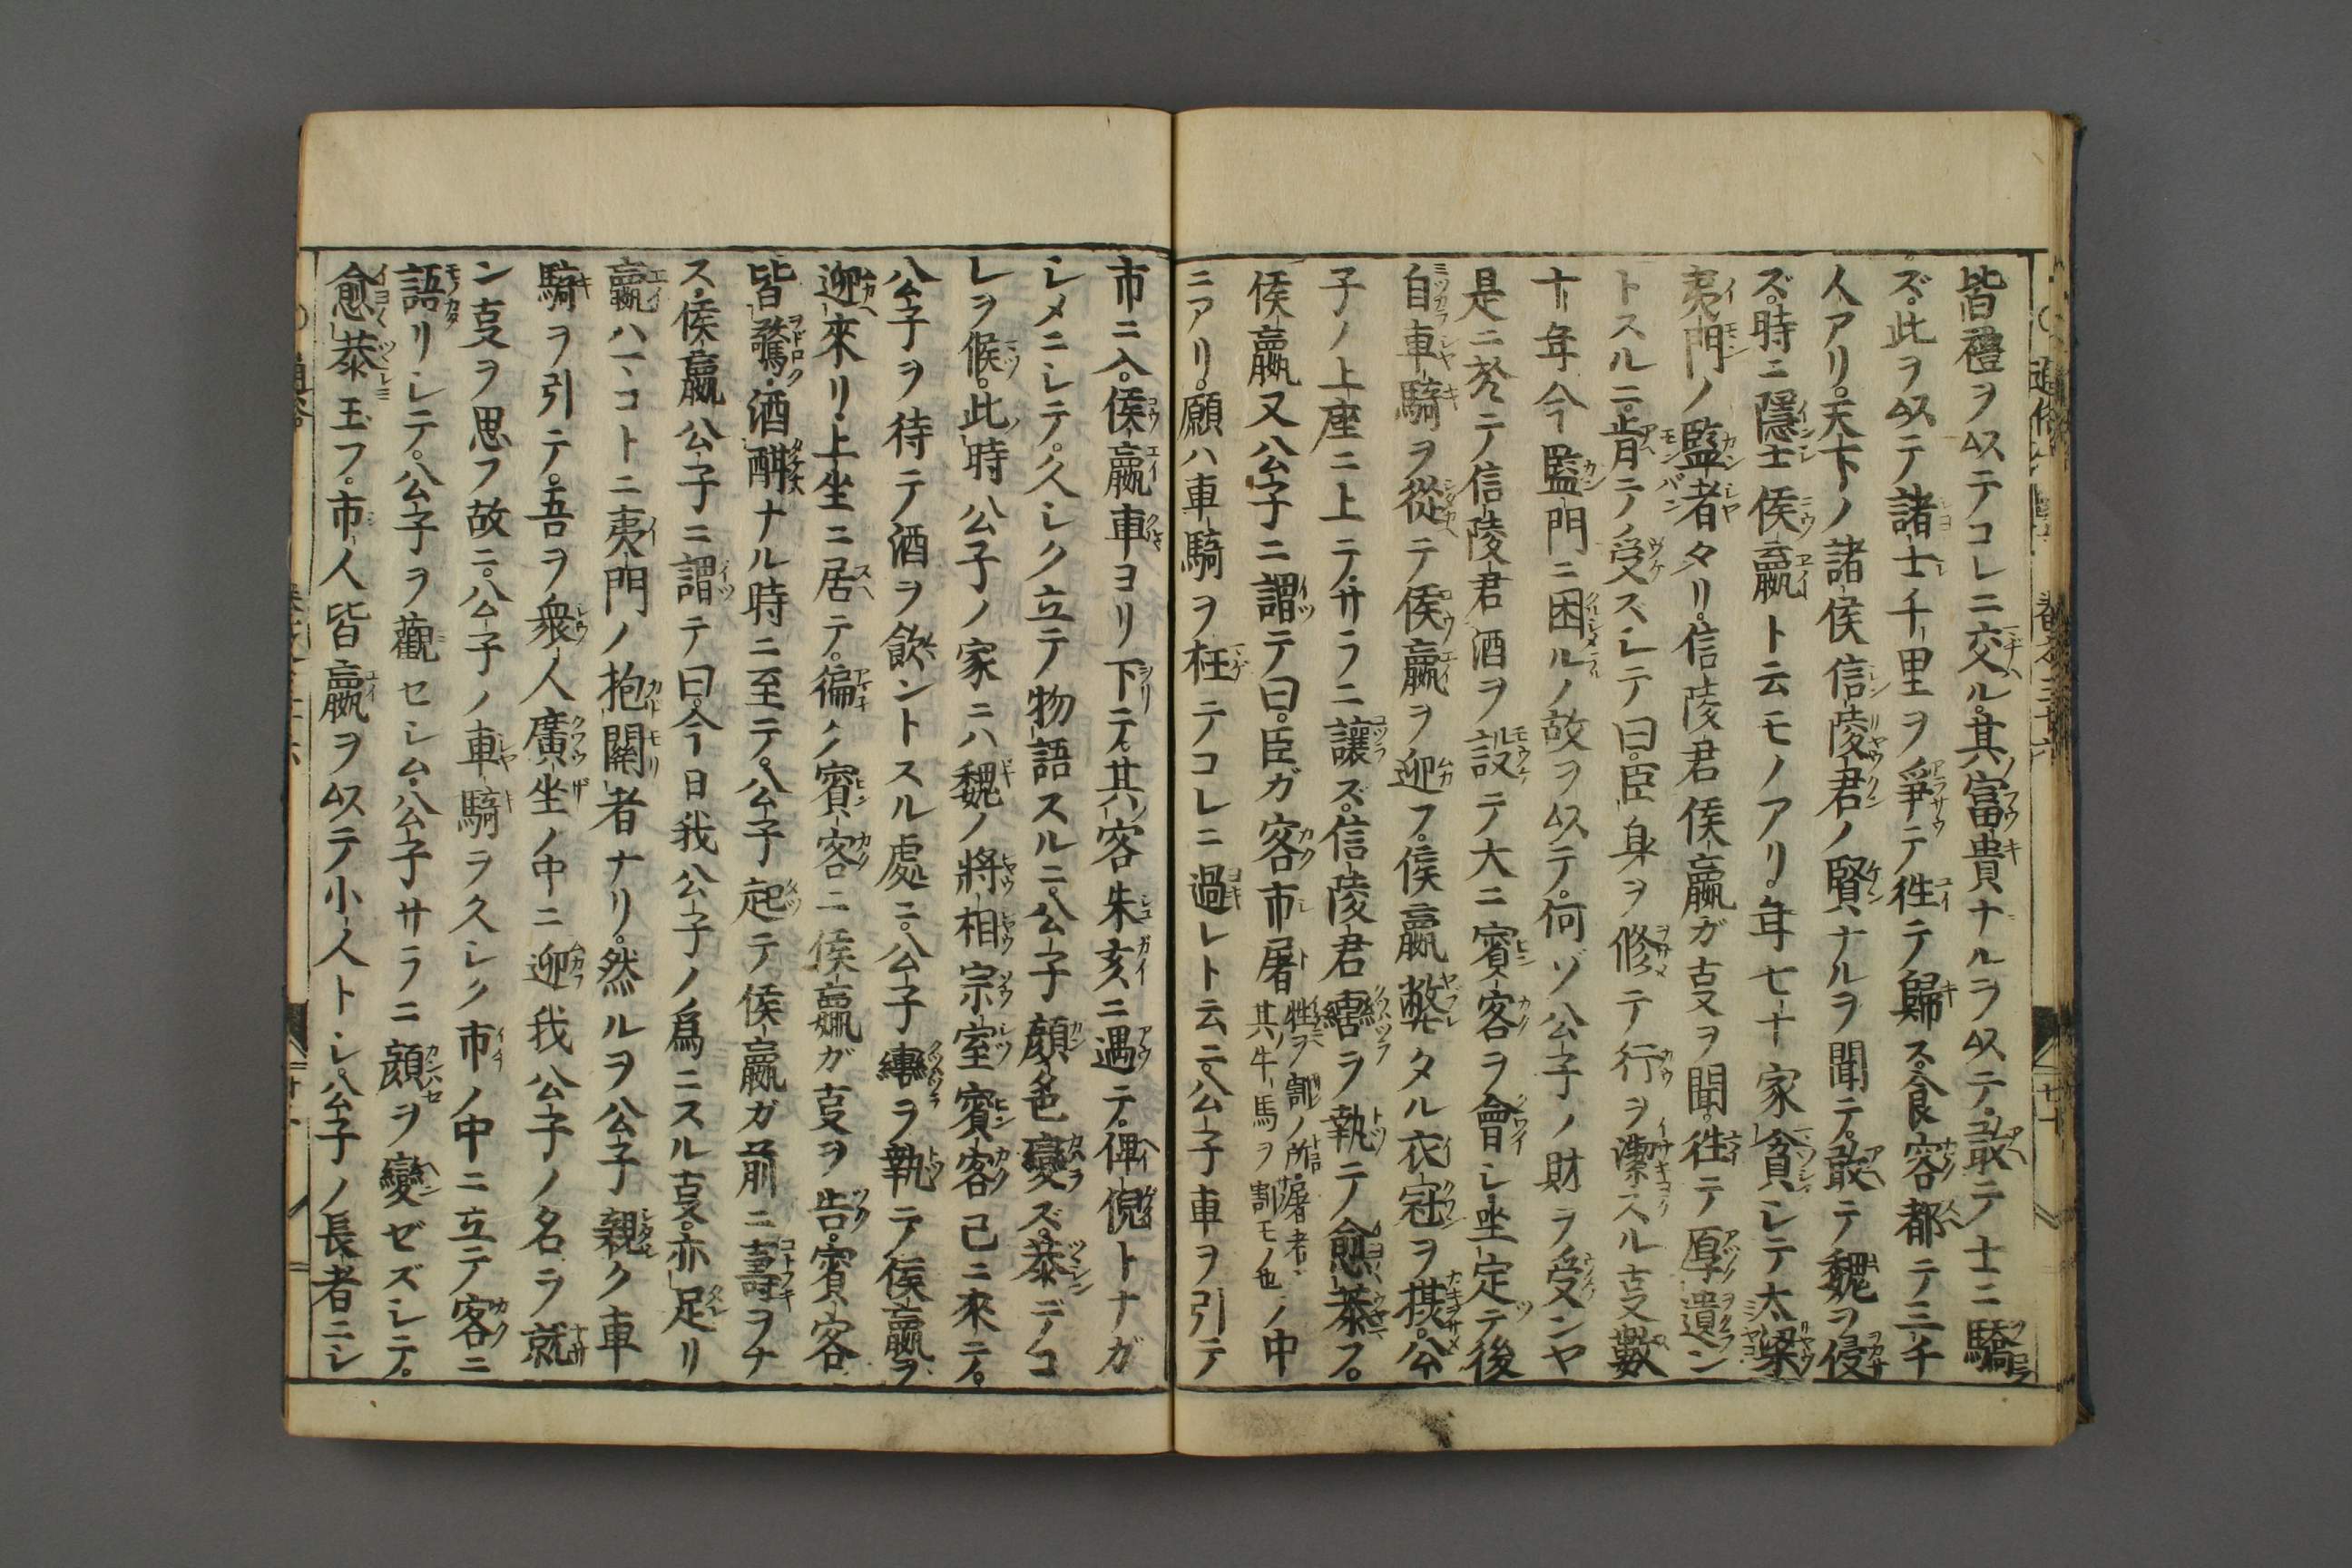 皆禮ヲ以テコレニ交ル。其富貴ナルヲ以テ。敢テ士ニ驕ラ
ズ。此ヲ以テ諸士千里ヲ爭テ徃テ歸ス。食客都テ三千
人アリ。天下ノ諸侯信陵君ノ賢ナルヲ聞テ。敢テ魏ヲ侵サ
ズ。時ニ隱士侯嬴ト云モノアリ。年七十家貧シテ太梁
夷門ノ監者タリ。信陵君侯嬴ガ叓ヲ聞。徃テ厚遺ン
トスルニ。肯テ受ズシテ曰。臣身ヲ修テ行ヲ潔スル叓數
十年今監門ニ困ルノ故ヲ以テ。何ゾ公子ノ財ヲ受ンヤ
是ニ於テ信陵君酒ヲ設テ大ニ賓客ヲ會シ坐定テ後
自車騎ヲ從テ侯嬴ヲ迎フ。侯嬴敝タル衣冠ヲ摂。公
子ノ上座ニ上テ。サラニ讓ズ。信陵君轡ヲ執テ愈恭フ。
侯嬴又公子ニ謂テ曰。臣ガ客市屠ノ中
ニアリ。願ハ車騎ヲ枉テコレニ過レト云ニ。公子車ヲ引テ
市ニ入。侯嬴車ヨリ下テ。其客朱亥ニ遇テ。俾倪トナガ
シメニシテ。久シク立テ物語スルニ。公子顔色變ズ。恭デコ
レヲ候。此時公子ノ家ニハ魏ノ將相宗室賓客已ニ來テ。
公子ヲ待テ酒ヲ飲ントスル處ニ。公子轡ヲ執テ侯嬴ヲ
迎來リ。上坐ニ居テ。徧ク賓客ニ侯嬴ガ叓ヲ告。賓客
皆驚。酒酣ナル時ニ至テ。公子起テ侯嬴ガ前ニ壽ヲナ
ス。侯嬴公子ニ謂テ曰。今日我公子ノ爲ニスル叓。亦足リ
嬴ハマコトニ夷門ノ抱關者ナリ。然ルヲ公子親ク車
騎ヲ引テ。吾ヲ衆人廣坐ノ中ニ迎。我公子ノ名ヲ就
ン叓ヲ思フ故ニ。公子ノ車騎ヲ久シク市ノ中ニ立テ客ニ
語リシテ。公子ヲ觀セシム。公子サラニ顔ヲ變ゼズシテ。
愈恭玉フ。市人皆嬴ヲ以テ小人トシ。公子ノ長者ニシ